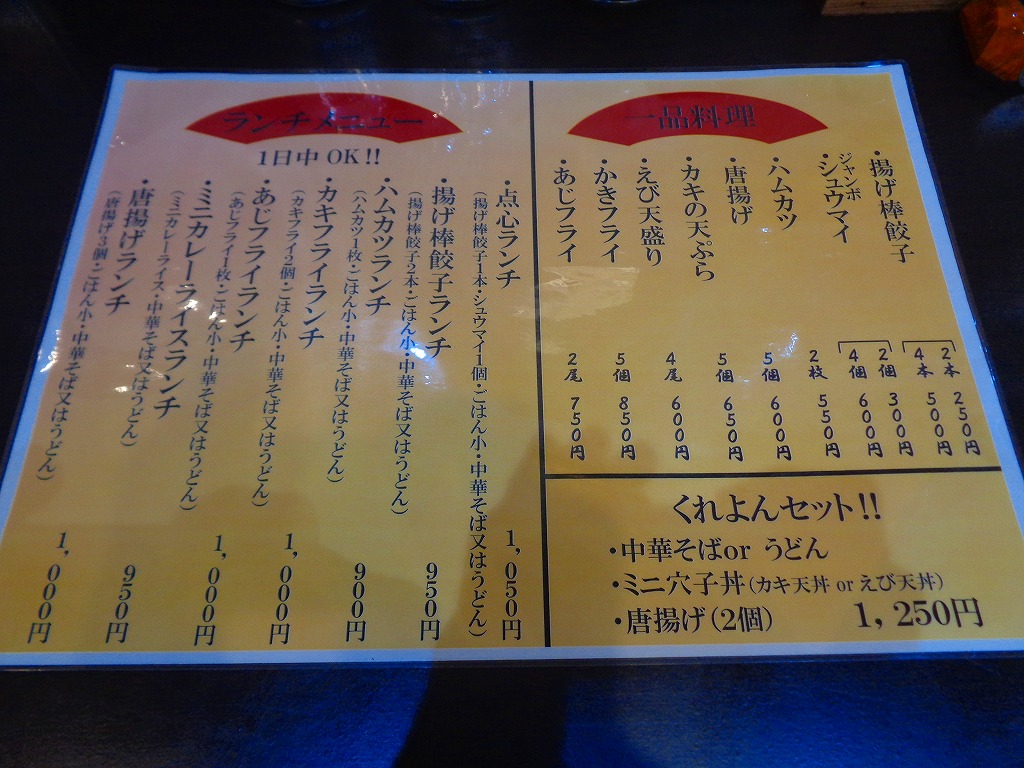 ランチメニュー
1日中 OK!!
・点心ランチ 1,050円
(揚げ棒餃子1本・シュウマイ1個・ごはん小・中華そば又はうどん)
・揚げ棒餃子ランチ 950円
(揚げ棒餃子2本・ごはん小・中華そば又はうどん)
・ハムカツランチ 900円
(ハムカツ1枚・ごはん小・中華そば又はうどん)
・カキフライランチ 1,000円
(カキフライ2個・ごはん小・中華そば又はうどん)
・あじフライランチ 1,000円
(あじフライ1枚・ごはん小・中華そば又はうどん)
・ミニカレーライスランチ 950円
(ミニカレーライス・中華そば又はうどん)
・唐揚げランチ 1,000円
(唐揚げ3個・ごはん小・中華そば又はうどん)
一品料理
・揚げ棒餃子 2本 250円
4本 500円
・ジャンボシュウマイ 2個 300円
4個 600円
・ハムカツ 2枚 550円
・唐揚げ 5個 600円
・カキの天ぷら 5個 650円
・えび天盛り 4尾 600円
・かきフライ 5個 850円
・あじフライ 2尾 750円
くれよんセット!!
・中華そばor うどん
・ミニ穴子丼(カキ天丼 or えび天丼)
・唐揚げ(2個) 1,250円